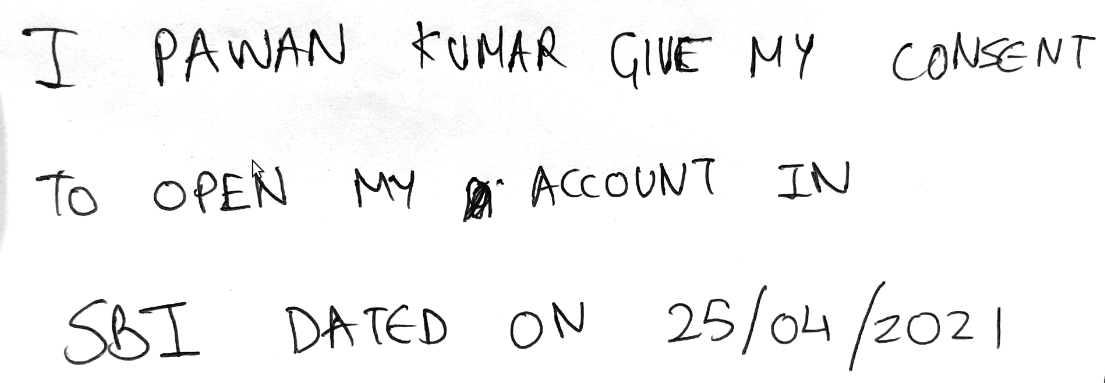 I PAWAN KUMAR GIVE MY CONSENT
TO OPEN MY ACCOUNT IN
SBI DATED ON 25/04/2021